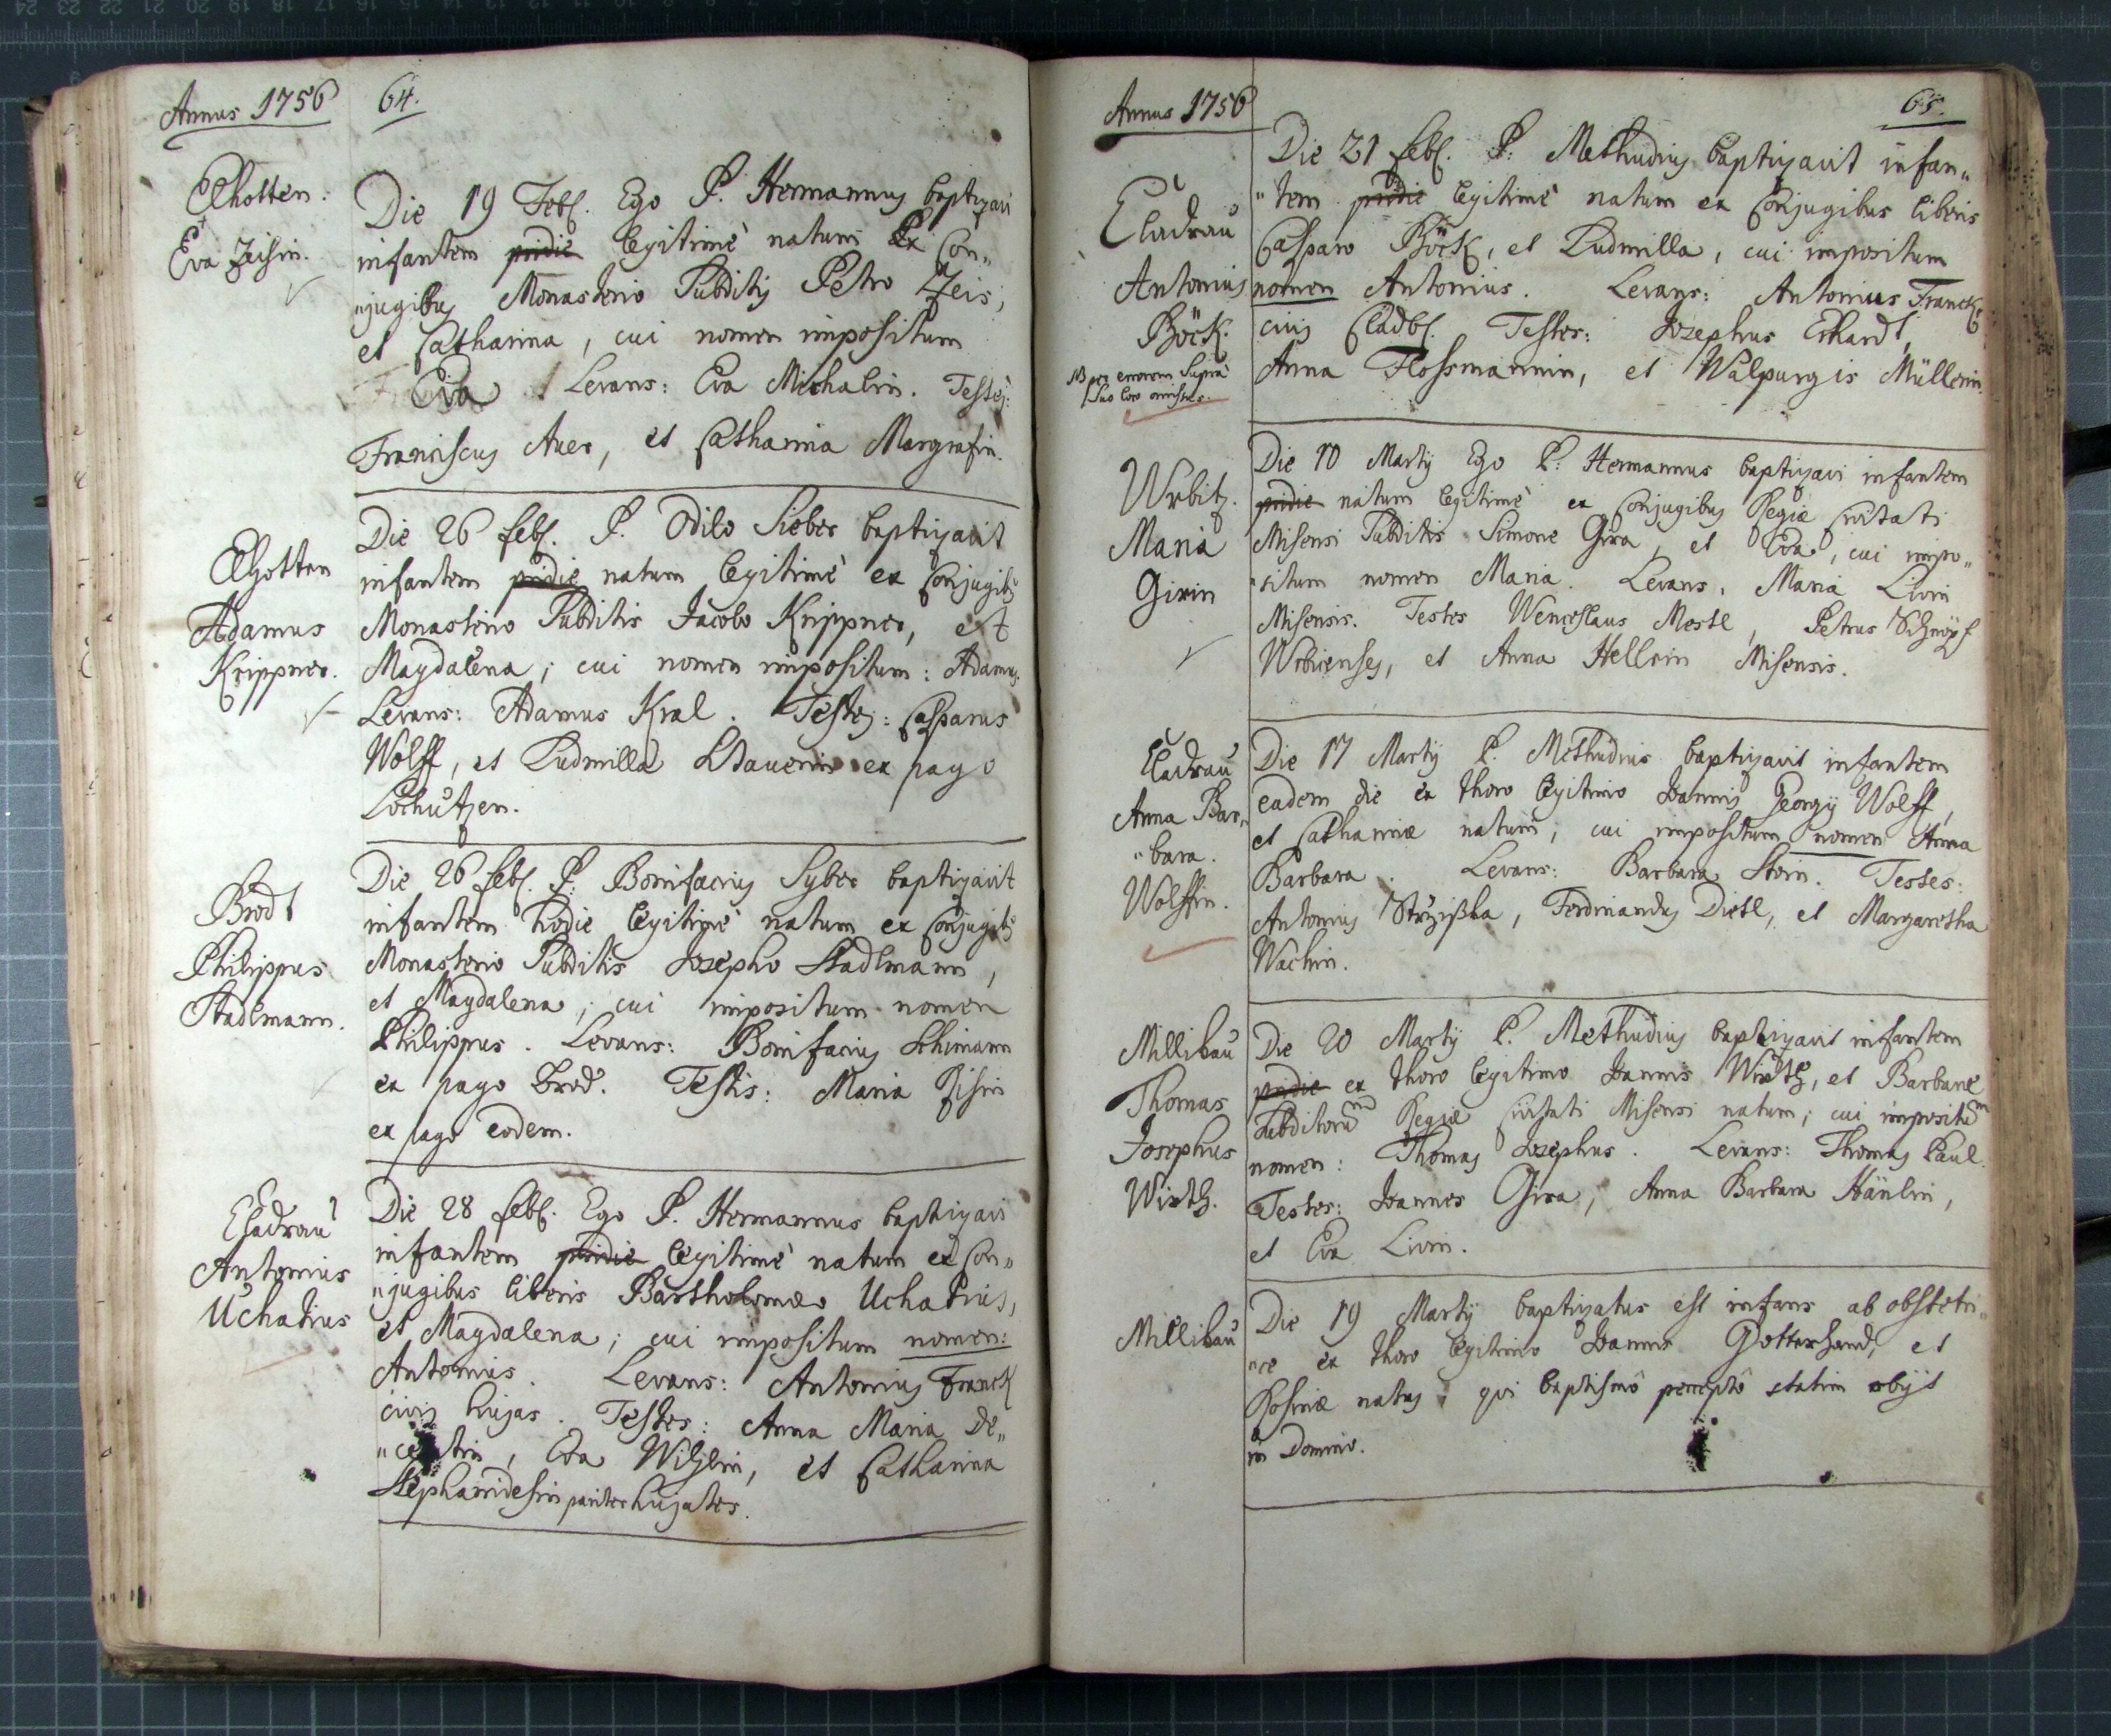 Annus 1756
64.
Elhotten:
Eva Zeisin.
Die 19 Febr. Ego P. Hermannus baptizavi
infantem pridie legitimè natum Ex Con„
„jugibus Monasterio Subditis Petro Zeis,
et Catharina, cui nomen impositum
Eva Levans: Eva Michalin. Testes:
Franciscus Auer, et Catharina Margrafin.
Elhotten
Adamus
Krippner.
Die 26 febr. P. Odilo Sieber baptizavit
infantem pridie natum legitimè ex Conjugibus
Monasterio Subditis Jacobo Krippner, et
Magdalena; cui nomen impositum: Adamus.
Levans: Adamus Kral. Testes: Casparus
Wolff, et Ludmilla ex pago
Lochutzen.
Brodt
Philippus
Stadlmann.
Die 26 febr. P. Bonifacius Syber baptizavit
infantem hodie legitimè natum ex Conjugibus
Monasterio Subditis Josepho Stadlmann,
et Magdalena, cui impositum nomen
Philippus. Levans: Bonifacius Schimann
ex pago Brod. Testis: Maria Zisin
ex pago eodem.
Cladrau
Antonius
Uchatius
Die 28 febr. Ego P. Hermannus baptizavi
infantem pridie legitimè natum ex Con„
„jugibus liberis Bartholomaeo Uchatius,
et Magdalena; cui impositum nomen:
Antonius. Levans: Antonius Franck
civis hujas. Testes: Anna Maria De„
Eva Wihlin, et Catharina
Stephanidesin pariter hujates.
Annus 1756
65.
Cladrau
Antonius
Böck.
NB per errorem Supra
suo loco omissus.
Die 21 febr. P: Methudius baptizavit infan„
„tem pridie legitimè natum ex Conjugibus liberis
Casparo Böck, et Ludmilla, cui impositum
nomen Antonius. Levans: Antonius Franck,
civis Cladr. Testes: Josephus Erhardt,
Anna Flossmannin, et Walpurgis Müllerin.
Wrbitz.
Maria
Girin
Die 10 Martij Ego P: Hermannus baptizavi infantem
pridie natum legitimè ex Conjugibus Regiae Civitati
Misensi Subditis Simone Gira, et Eva, cui impo„
„situm nomen Maria. Levans, Maria Livin
Misensis. Testes Wenceslaus Mostl, Petrus Schnöpf
Wrbicenses, et Anna Hellrin Misensis.
Cladrau
Anna Bar„
„bara.
Wolffin.
Die 17 Martij P. Methudius baptizavit infantem
eadem die ex thoro legitimo Joannis Georgij Wolff,
et Catharinae natum, cui impositum nomen Anna
Barbara. Levans: Barbara Storin. Testes:
Antonius Strzißka, Ferdinandus Dietl, et Margaretha
Wachin.
Millikau
Thomas
Josephus
Wirth.
Die 20 Martij P. Methudius baptizavit infantem
pridie ex thoro legitimo Joannis Wirth, et Barbarae
Subditorum Regiae Civitati Misensi natum; cui impositum
nomen: Thomas Josephus. Levans: Thomas Paul.
Testes: Joannes Gira, Anna Barbara Hänlin,
et Eva Livin.
Millikau
Die 19 Martij baptizatus est infans ab obstetri„
„ce ex thoro legitimo Joannis Gotterhand, et
Rosinae natus, qui baptismô perceptô statim obijt
in Domino.